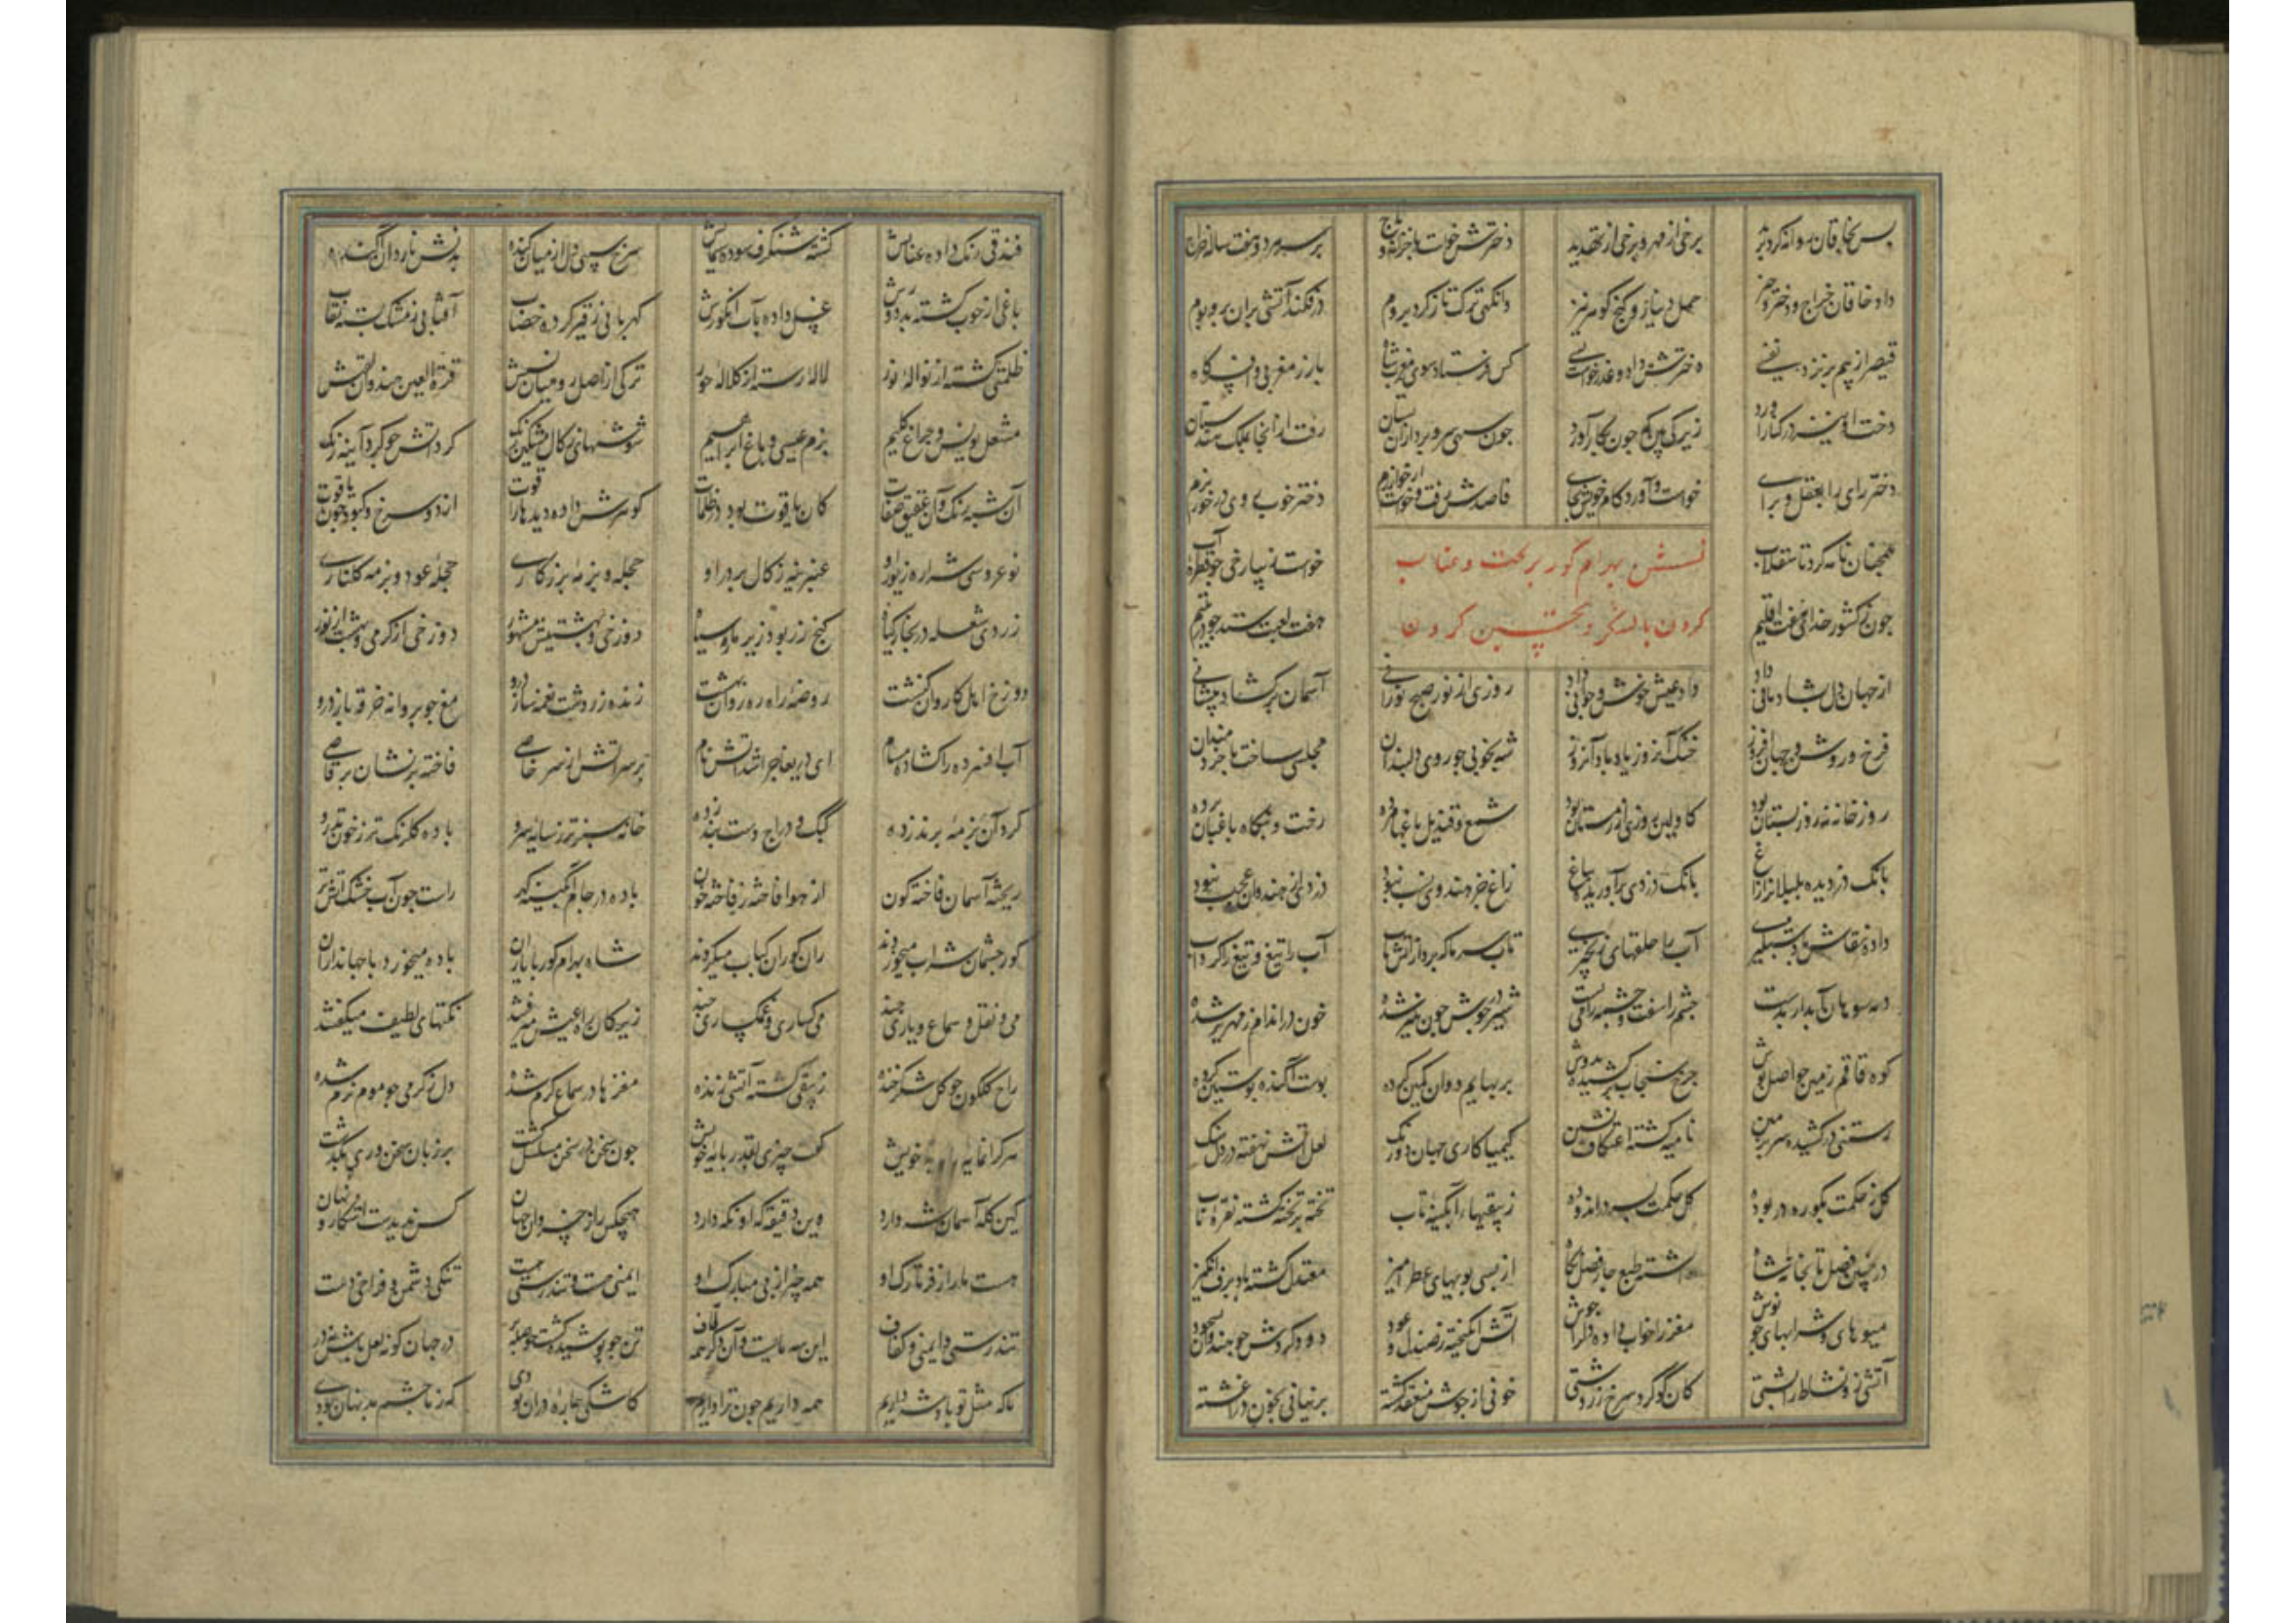 پس بخاقان روانه کرد برید برخی از مهر و برخی از تهدید دخترش خواست با خزانه و تاج بر سر هر دو هفت ساله خراج
داد خاقان خراج و دختر و چیز حمل دینار و کنج کوهر نیز وانکهی ترک تاز کرد بروم درفکند آتشی بران بر و بوم
قیصر از بیم بر نزد نفسی دخترش داد و عذر خواست بسی کس فرستاد سوی مغرب شاه با زر مغربی و افسر و کاه
دخت او نیز در کنار آورد زیرکی بین که چون بکار آورد چون سهی سرو برد ازان بستان رفت ازانجا بملک هندستان
دختر رای را بعقل و برای خواست و آورد کام خویش بجای قاصدش رفت و خواست از خوارزم دختر خوب روی در خور بزم
همچنان نامه کرد تا سقلاب خواست زیبا رخی چو قطره آب
چون ز کشور خدای هفت اقلیم هفت لعبت ستد چو در یتیم
بهرام کور بر تخت و عتاب
کردن با لشکر و کردن
از جهان دل بشادمانی داد داد عیش خوش و جوانی داد روزی از نور صبح نورانی آسمان بر کشاده پیشانی
فرخ و روشن و جهان افروز خنک آن روز یاد باد آن روز شه بخوبی چو روی دلبندان مجلسی ساخت با خردمندان
روز خانه نه روز بستان بود کاولین روزی از زمستان بود شمع و قندیل باغها مرده رخت و بنکاه باغبان برده
بانک دزدیده بلبلانرا زاغ بانک دزدی برآوریده بباغ زاغ جز هندوی نسب نبود دزدی از هندوان عجب نبود
داده نقاش باد شبکیری آب را حلقهای زنجیری تاب سرما که برد از آتش تاب آب را تیغ و تیغ را کرد آب
دمه سوهان آبدار بدست چشم را سفت و چشمه را می بست شیر در جوش چون پنیر شده خون در اندام زمهریر شده
کوه قاقم زمین حواصل پوش چرخ سنجاب در کشیده بدوش بر بهایم ددان کمین کرده پوست آکنده پوستین کرده
رستنی در کشیده سر بزمین نامیه کشته اعتکاف نشین کیمیا کاری جهان دو رنک لعل آتش نهفته در دل سنک
کل ز حکمت بکوره در بوده کل حکمت بسر در اندوده زیبقیهای آبکینه ناب تخته بر تخته کشته نقره ناب
در چنین فصل تابخانه شاه داشته طبع چار فصل نکاه از بسی بویهای عطرآمیز معتدل کشته باد برف انکیز
میوهای و شرابهای چو نوش مغز را خواب داده دلرا جوش آتش انکیخته ز صندل و عود دود کردش چو هندوان بسجود
آتشی زو نشاط را پشتی کان کوکرد سرخ زردشتی خونی از جوش منعقد کشته پرنیانی بخون در آغشته
فندقی رنک داده عنابش کشته شنکرف سوده سیمابش سرخ سیبی دل از میان کنده بدلش ناردان آکنده
غسل داده بآب انکورش کهربائی ز قیر کرده خضاب آفتابی ز مشک بسته نقاب
ظلمتی کشته از نواله نور لاله رسته از کلاله حور ترکی از اصل رومیان نسبش قرة العین هندوان لقبش
مشعل یونس و چراغ کلیم بزم عیسی و باغ ابراهیم شوشهای زکال مشکین رنک کرد آتش چو کرد آینه زنک
آن شبه رنک و آن عقیق صفات کان یاقوت بود در ظلمات کوهرش داده دیدها را قوت زرد و سرخ و کبود چون یاقوت
نو عروسی شراره زیور او عنبرینه زکال در بر او حجله و بزمه بزرکاری حجله عود و بزمه کلناری
زردی شعله در بخار کیاه کنج زر بود زیر مار سیاه دوزخی و بهشتیش مشهور دوزخ از کرمی و بهشت از نور
دوزخ اهل کاروان کنشت روضه راه رهروان بهشت زند زردشت نغمه ساز درو مغ چو پروانه خرقه باز درو
آب افسرده را کشاده مسام ای دریغا چرا شد آتش نام بر سر آتش از سر خاصی فاخته پرنشان برقاصی
کرد آن بزمه پرند زده کبک و دراج دست بند زده خانه سبزتر ز سایه سرو باده کلرنک تر ز خون تذرو
ریخته آسمان فاخته کون از هوا فاخته ز فاخته خون باده در جام آبکینه کهر راست چون آب خشک و آتش تر
کور چشمان شراب میخوردند ران کوران کباب میکردند شاه بهرام کور با یاران باده میخورد با جهانداران
می و نقل و سماع و یاری چند می کساری و غمکساری چند نکتهای لطیف میکفتند
راح کلکون چو کل شکر خنده پخته کشته آتشی زنده مغزها در سماع کرم شده دل ز کرمی چو موم نرم شده
خویش کفت چیزی بقدر پایه خویش چون سخن در سخن مسلسل کشت بر زبان سخنوری بکذشت
کین کله آسمان شه دارد وین دقیقه که او نکه دارد هیچکس را ز خسروان جهان کس ندیدست آشکار و نهان
هست ما را ز فر تارک او همه چیز از پی مبارک او ایمنی هست و تندرستی هست تنکی دشمن و فراخی دست
تندرستی و ایمنی و کفاف این سه مایه است و آن دکر همه لاف تن چو پوشیده کشت و حوصله پر در جهان کو نه لعل باش و نه در
ما که مثل تو پادشه داریم همه داریم چون ترا داریم کاشکی چاره در آن بودی که ز ما چشم بد نهان بودی